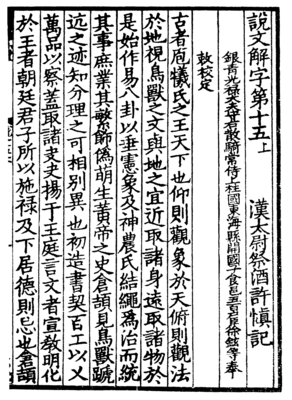 說文解字第十五上
漢太尉祭酒許慎記
銀青光祿大夫守右散騎常侍上柱國東海縣開國子食邑五百戶臣徐鉉等奉
敕校定
古者庖犧氏之王天下也仰則觀象於天俯則觀法
於地視鳥獸之文與地之宜近取諸身遠取諸物於
是始作易八卦以垂憲象及神農氏結繩為治而統
其事庶業其繁飾偽萌生黃帝之史倉頡見鳥獸蹏
迒之迹知分理之可相別異也初造書契百工以乂
萬品以察蓋取諸夬夬揚于王庭言文者宣教明化
於王者朝廷君子所以施祿及下居德則忌也倉頡